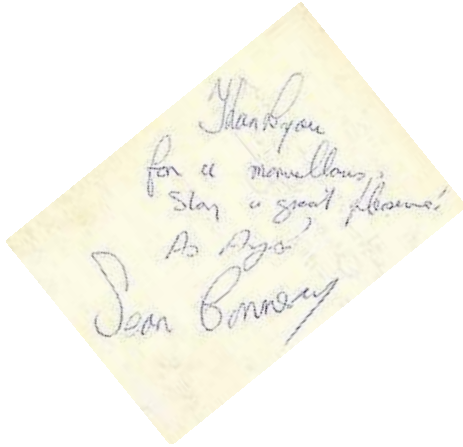 Thankyou
for a marvellous
Stay a great pleasure!
As
Sean Connery